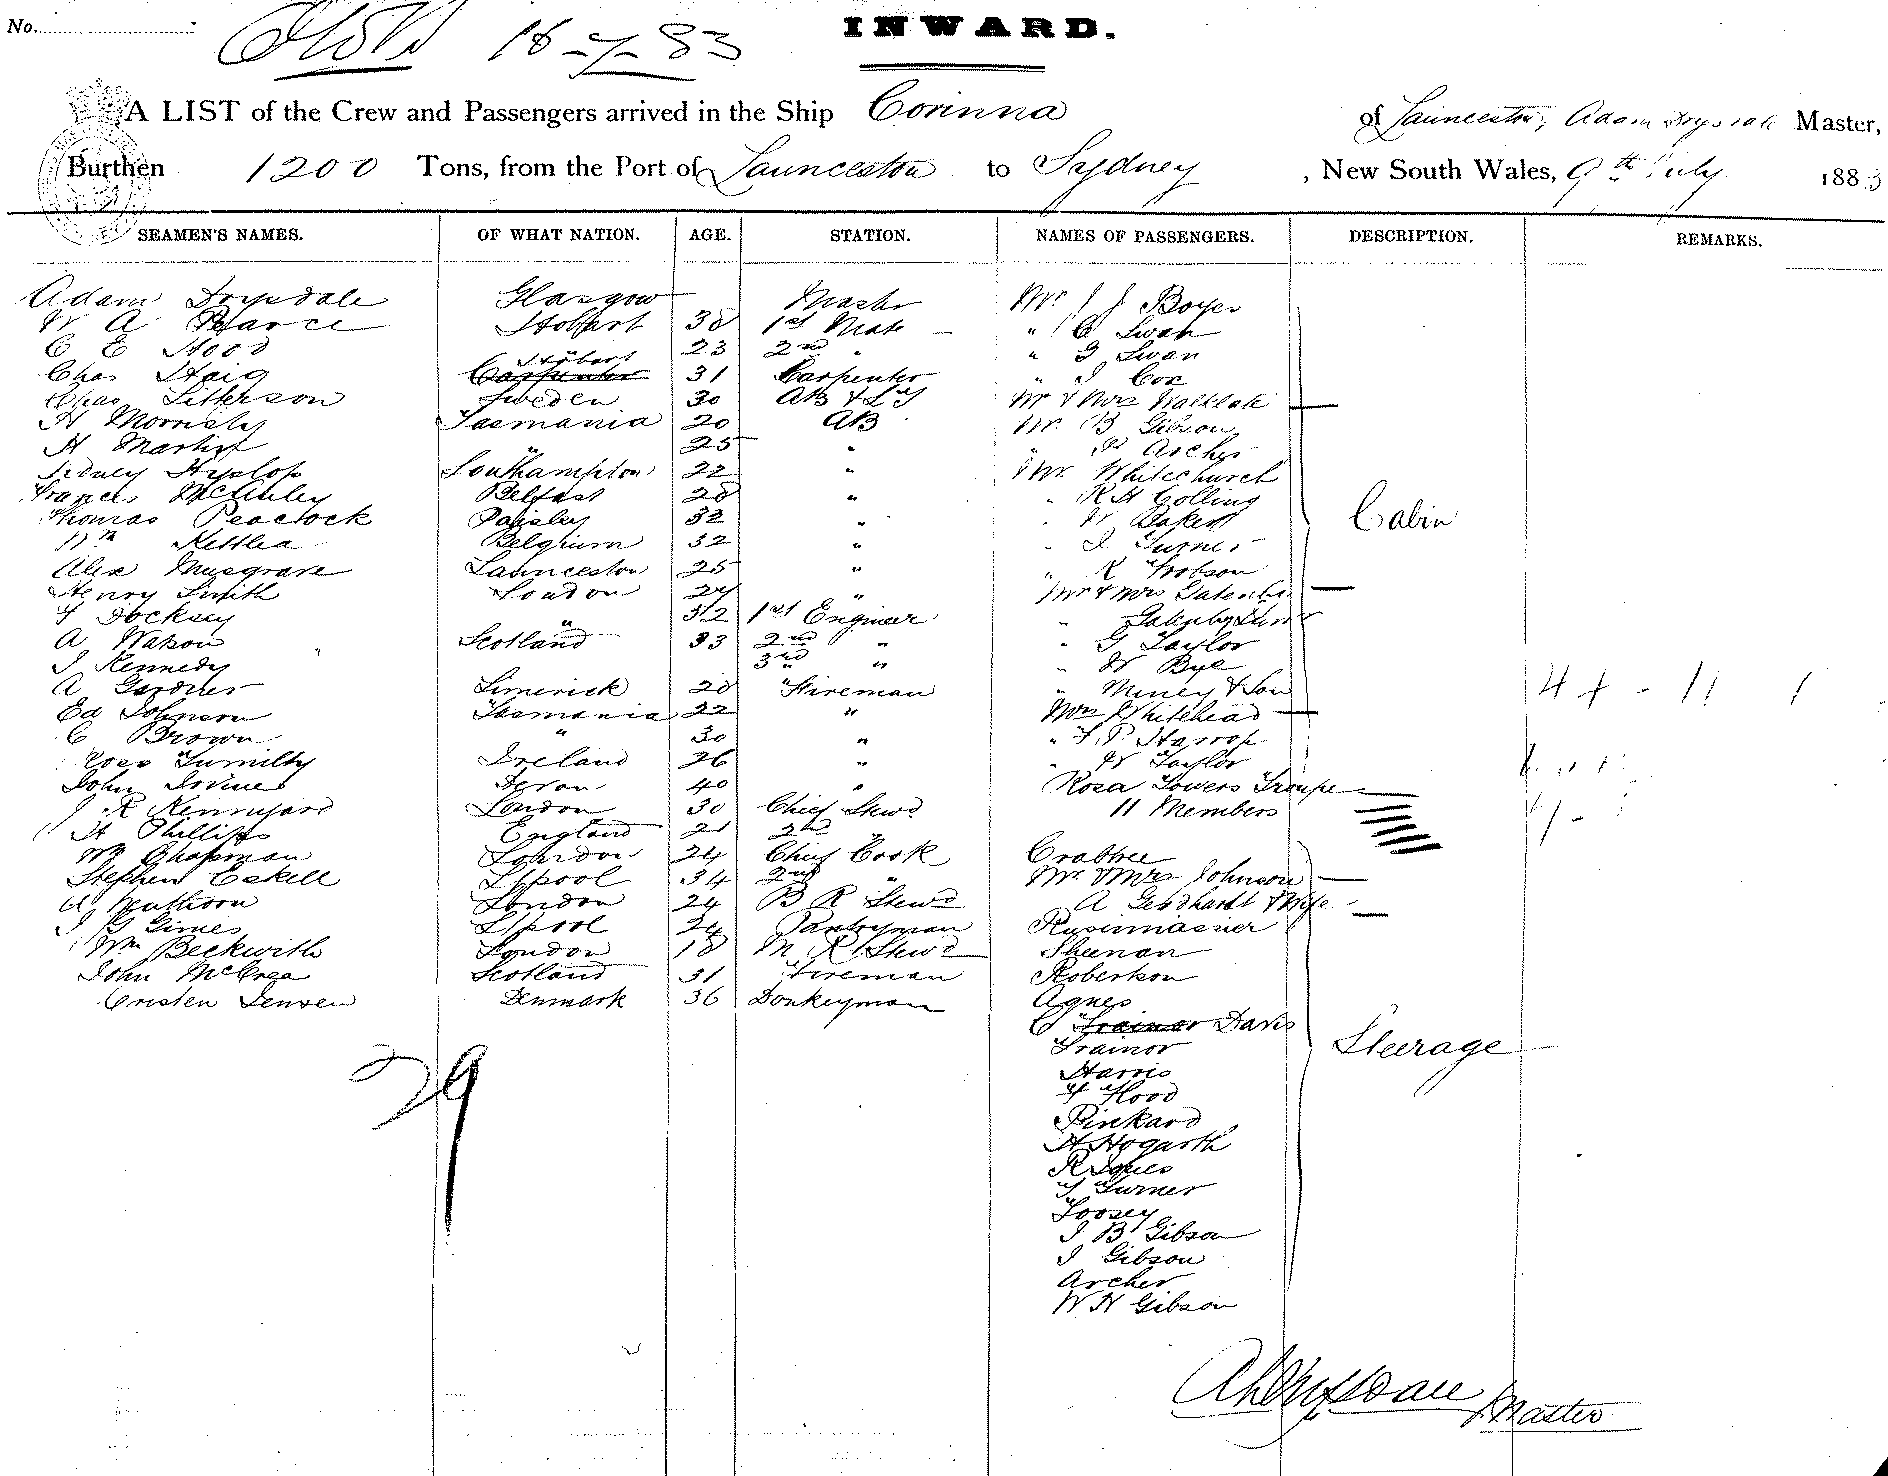 No.
18-7-83
INWARD.
A LIST of the Crew and Passengers arrived in the Ship Corinna of Launceston, Adam Drysdale Master,
Burthen 1200 Tons, from the Port of Launceston to Sydney, New South Wales, 9th July 1883
SEAMEN'S NAMES. OF WHAT NATION. AGE. STATION. NAMES OF PASSENGERS. DESCRIPTION. REMARKS.
Adam Drysdale Glasgow Mastr Mr J J Boyes
W A Pearce Hobart 38 1st Mate " C Swan
C E Hood Hobart 23 2nd " " G Swan
Chas Haig Carpenter 31 Carpenter " J Cox
Chas Sweden 30 AB & LT Mr & Mrs
H Tasmania 20 AB Mr. B Gibson
H Martin " 25 " Archer
Sidney Hyslop Southampton 22 " Mr. Whitechurch
Francis McGinley Belfast 28 " " R H Colling
Thomas Peacock Paisley 32 " " W Baker
Wm Belgium 32 " " J Turner
Alex Musgrave Launceston 25 " " R Hobson
Henry Smith London 27 " Mr & Mrs
Docksey " 32 1st Engineer "
A Watson Scotland 33 2nd " " G Taylor
J Kennedy 3rd " " W Bye
A Gardner Limerick 28 Fireman " Miney & Son
Ed Johnson Tasmania 22 " Whitehead
C Brown " 30 " " Harrop
Ross Tumilty Ireland 26 " " W Taylor
John 40 " Rosa Towers Troupe
J R Kennyard London 30 Chief Stewd 11 Members
H Phillips England 21 2nd
Wm Chapman London 24 Chief Cook Crabtree
Stephen Eskell L'pool 34 2nd " Mr. & Mrs Johnson
A London 24 B R Stewd A Gebhardt & Wife
J G Gimes L'pool 24 Pantryman
Wm Beckwith London 18 M R Stewd Sheenan
John McCrea Scotland 31 Fireman Robertson
Cristen Jensen Denmark 36 Donkeyman Agnes
C Trainor Davis
Trainor
Harris
F Hood
Pinkard
H Hogarth
R
T Turner
Toosey
J B Gibson
J Gibson
Archer
W H Gibson
Cabin
Steerage
29
Drysdale Master